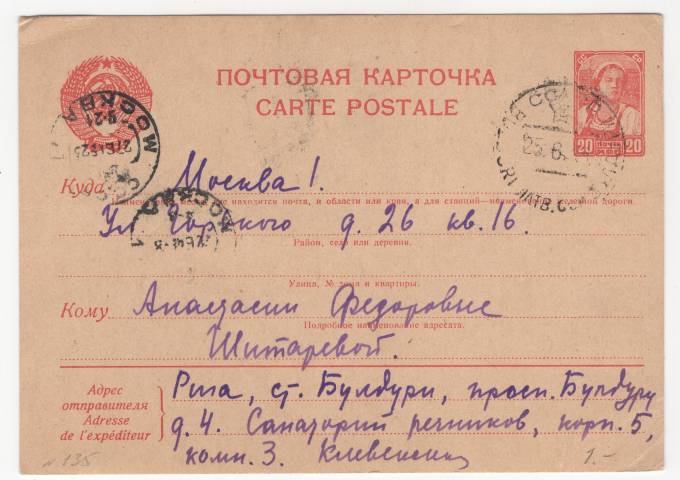 ПОЧТОВАЯ КАРТОЧКА
CARTE POSTALE
20 ПОЧТА 20
МОСКВА
25.6.
Куда Москва 1.
Наименование места, где находится почта, и области или края, а для станций—наименование железной дороги
Ул Горького д. 26 кв. 16.
Район, село или деревня.
Улица, № дома и квартиры.
Кому Анастасии Федоровне
Подробное наименование адресата.
Шитаревой.
Адрес отправителя
Adresse de l'expéditeur
Рига, ст. Булдури, просп. Булдуру
д. 4. Санаторий речников, корп. 5,
комн. 3.
№ 135
1.-